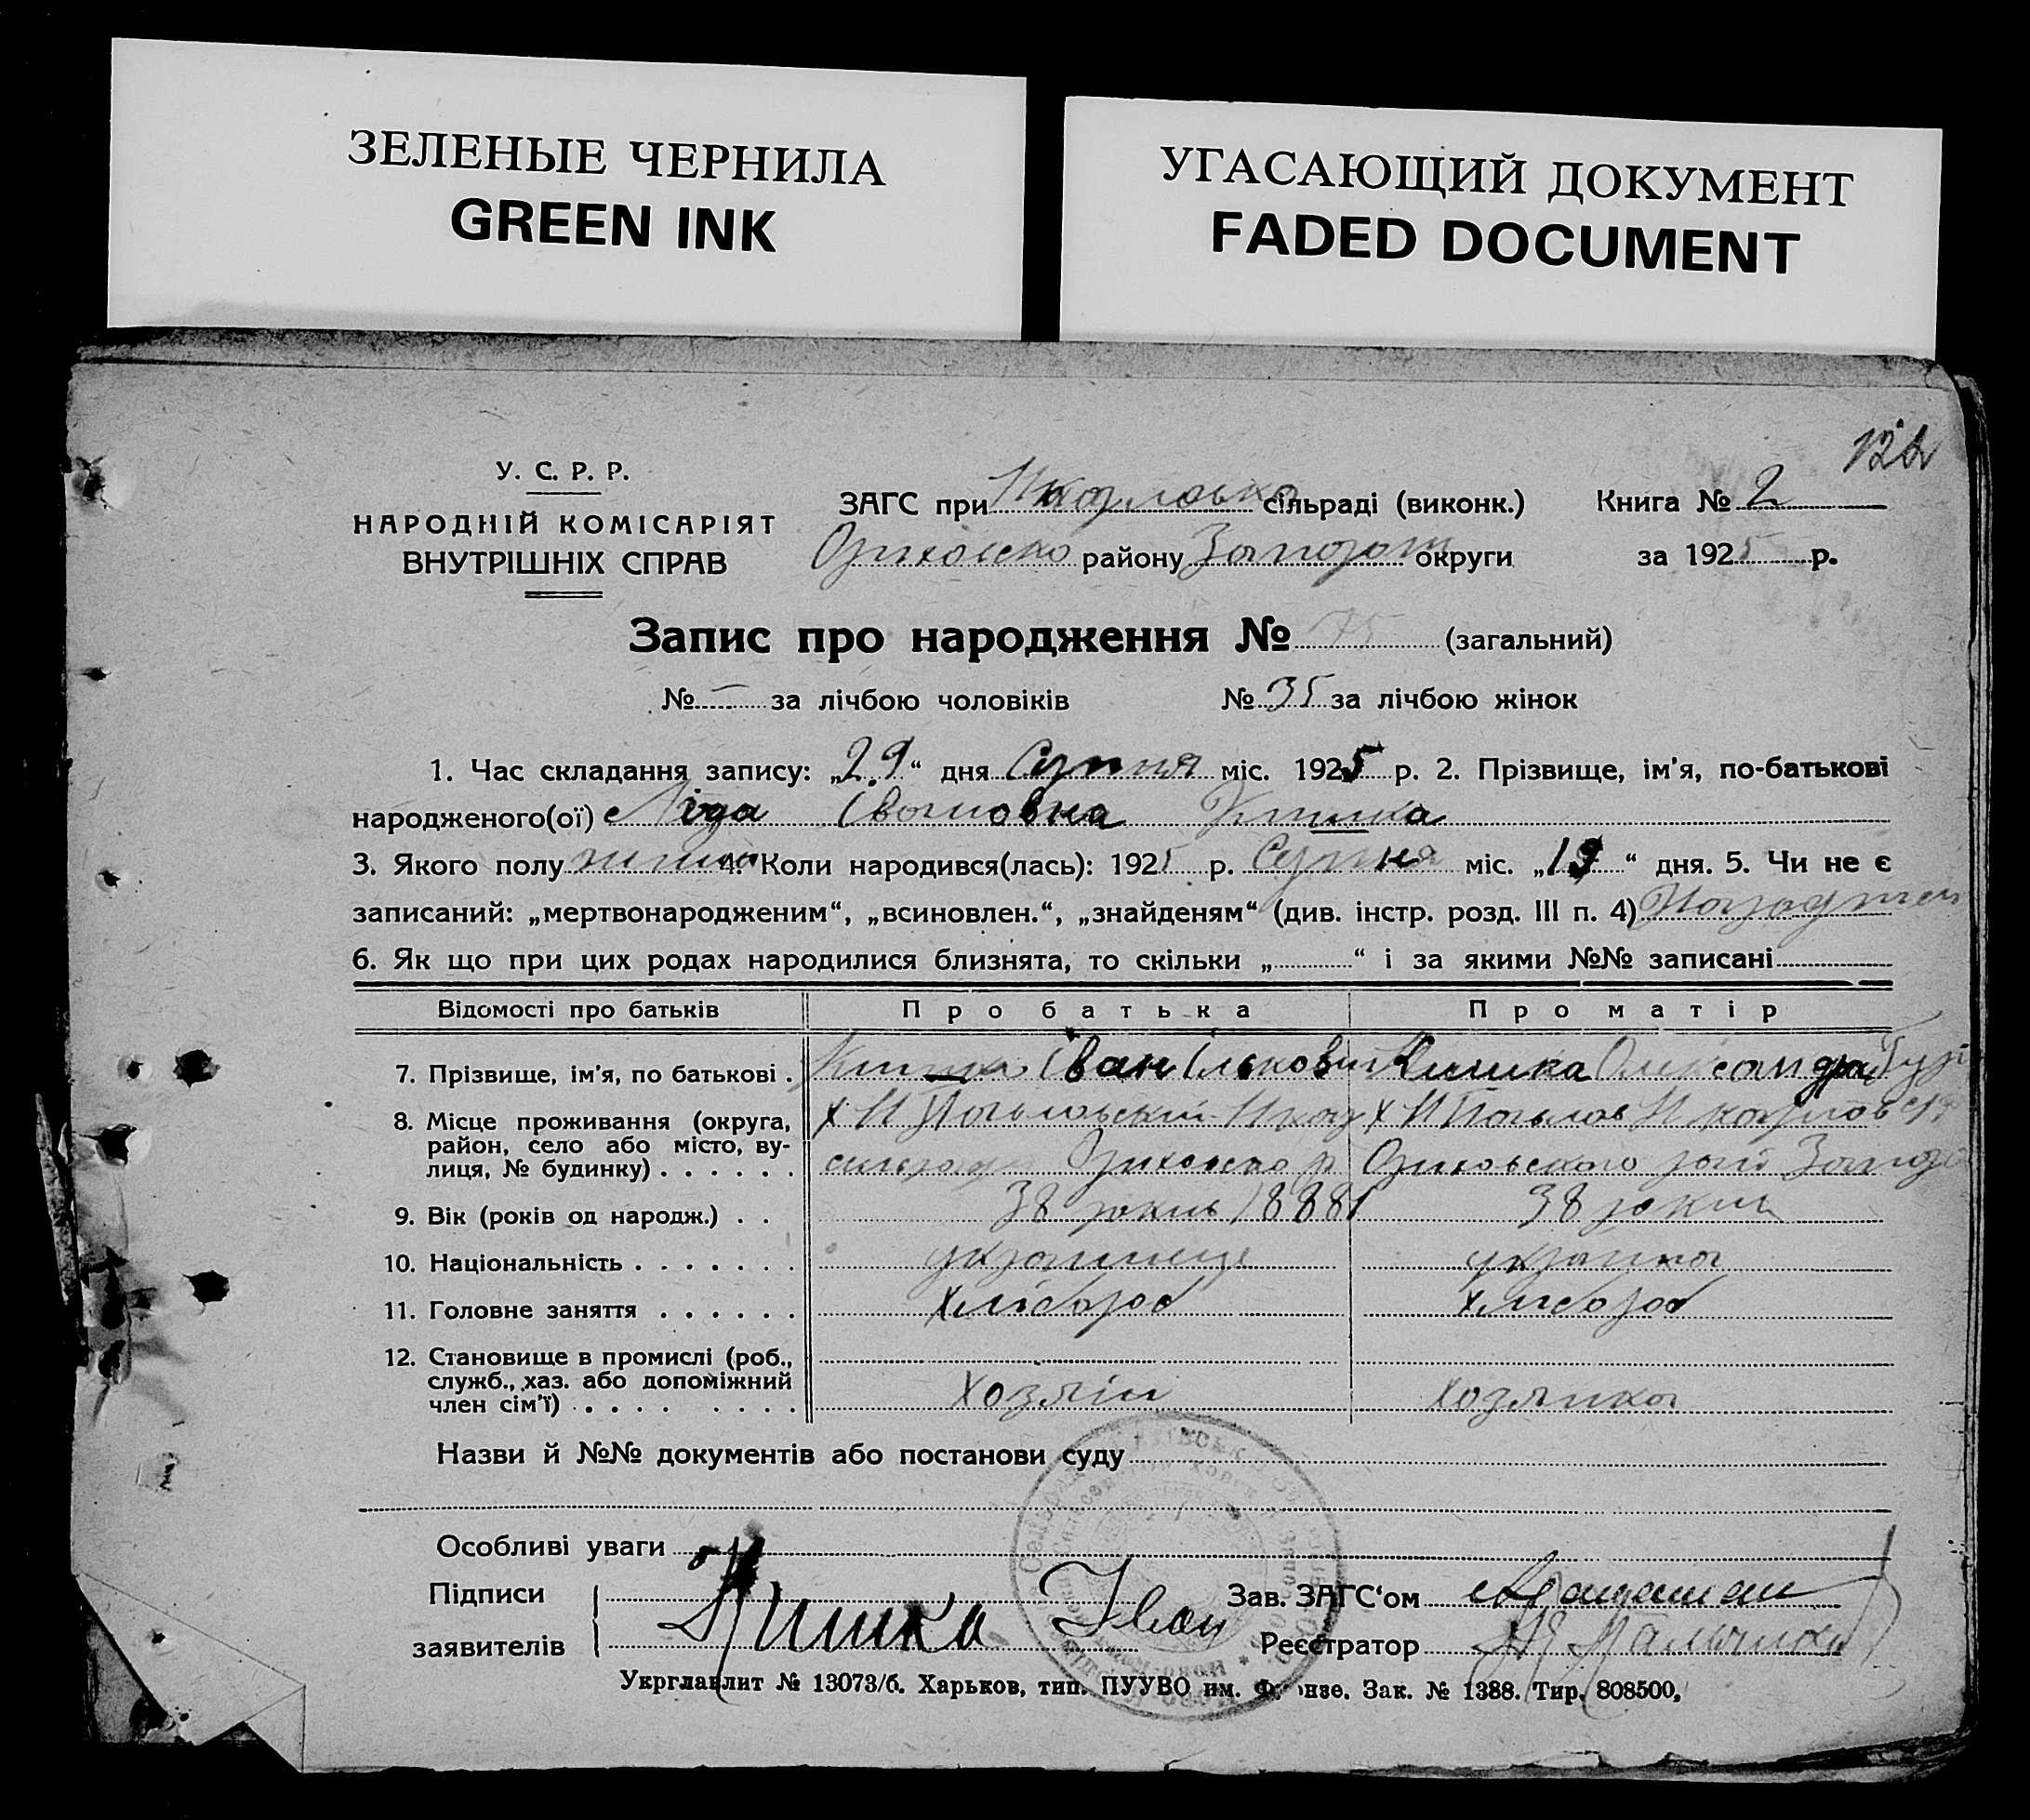 ЗЕЛЕНЫЕ ЧЕРНИЛА
GREEN INK
УГАСАЮЩИЙ ДОКУМЕНТ
FADED DOCUMENT
У. С. Р. Р.
НАРОДНІЙ КОМІСАРІЯТ
ВНУТРІШНІХ СПРАВ
ЗАГС при сільраді (виконк.)
Книга № 2
Оріховско району Запорож округи
за 1925 р.
Запис про народження № 75 (загальний)
№ — за лічбою чоловіків № 35 за лічбою жінок
1. Час складання запису: „29“ дня Серпня міс. 1925 р. 2. Прізвище, ім'я, по-батькові
народженого(ої) Ліда Івановна Кишка
3. Якого полу 4. Коли народився(лась): 1925 р. Серпня міс. „19“ дня. 5. Чи не є
записаний: „мертвонародженим“, „всиновлен.“, „знайденям“ (див. інстр. розд. III п. 4)
6. Як що при цих родах народилися близнята, то скільки „ “ і за якими №№ записані
Відомості про батьків Про батька Про матір
7. Прізвище, ім'я, по батькові . Кишка Іван Ількович Кишка Олександра
8. Місце проживання (округа,
район, село або місто, ву-
лиця, № будинку) . . . . . .
Оріховско р Оріховського
9. Вік (років од народж.) . . 38 років 38 років
10. Національність . . . . . . . українець українка
11. Головне заняття . . . . . . Хлібороб Хлібороб
12. Становище в промислі (роб.,
служб., хаз. або допоміжний
член сім'ї) . . . . . . . . Хозяін хозяйка
Назви й №№ документів або постанови суду
Особливі уваги
Підписи
заявителів
Кишка Іван
Зав. ЗАГС‘ом
Реєстратор
Укрглавлит № 13073/б. Харьков, тип. ПУУВО им. Фрунзе. Зак. № 1388. Тир. 808500.